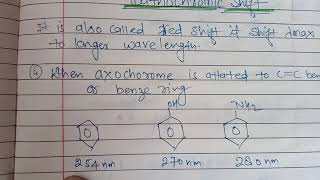 Bathochromic Shift
It is also called red shift & shift λmax
to longer wavelength.
④ When axochorome is attated to C=C ben
or benze ring
OH NH2
254nm 270nm 280nm